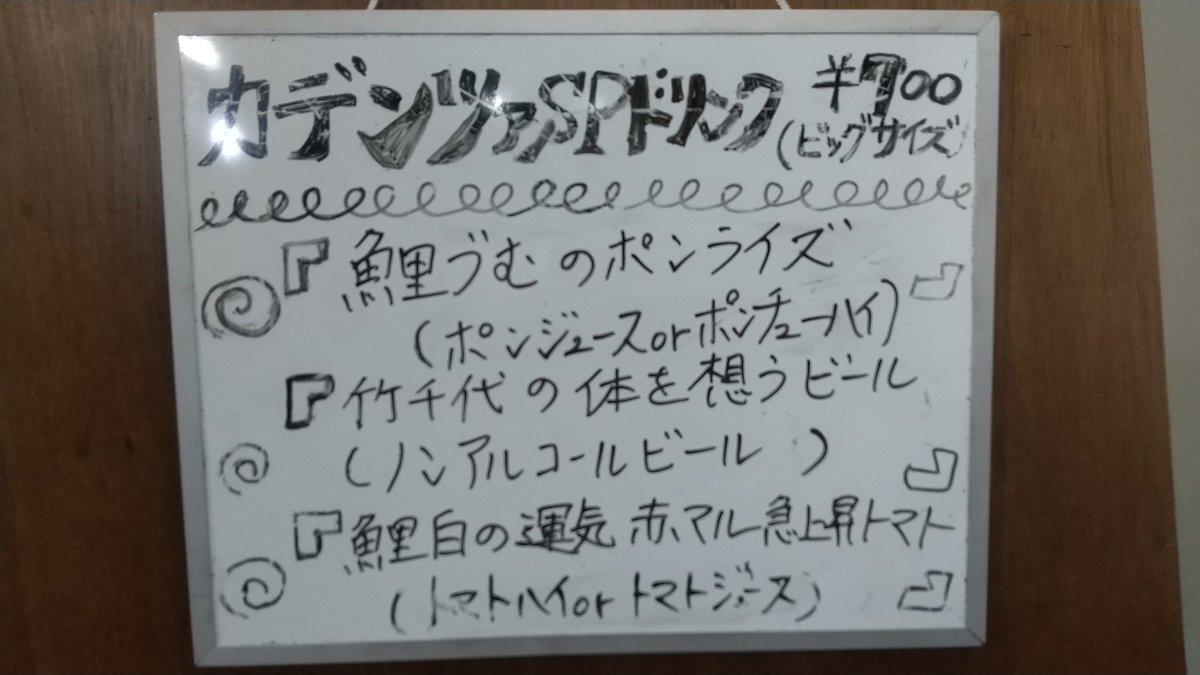 カデンツァSPドリンク ¥700
(ビッグサイズ)
『鯉づむのポンライズ』
(ポンジュースorポンチューハイ)
『竹千代の体を想うビール
(ノンアルコールビール )』
『鯉白の運気 赤マル急上昇トマト
(トマトハイorトマトジュース)』